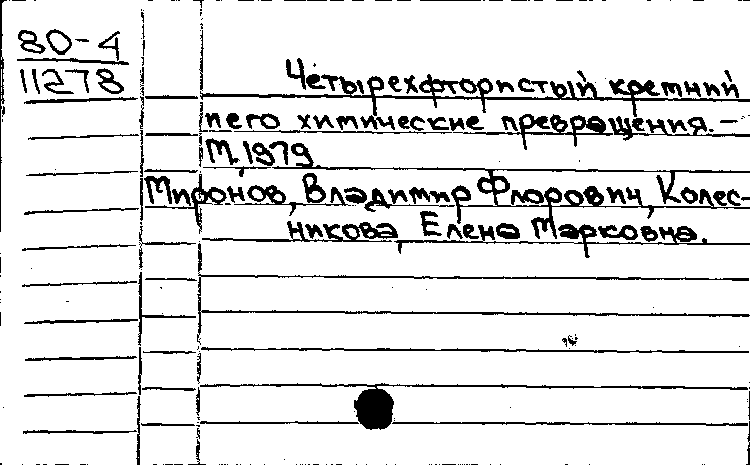 80-4
11278
Четырехфтористый кремний
и его химические превращения. —
М, 1979.
Миронов, Владимир Флорович, Колес-
никова, Елена Марковна.